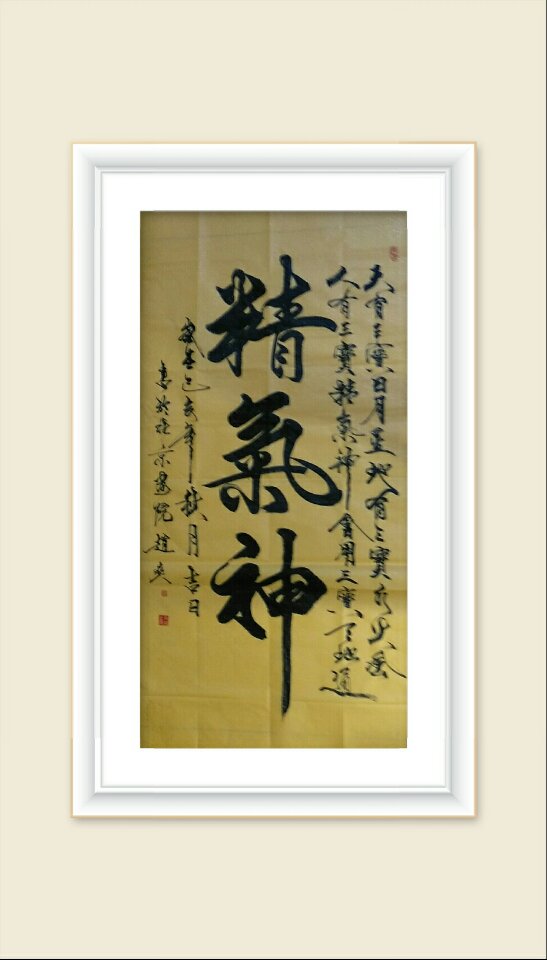 天有三寶日月星地有三寶水火風
人有三寶精氣神會用三寶天地通
精氣神
歲在己亥年秋月吉日
書於北京院趙